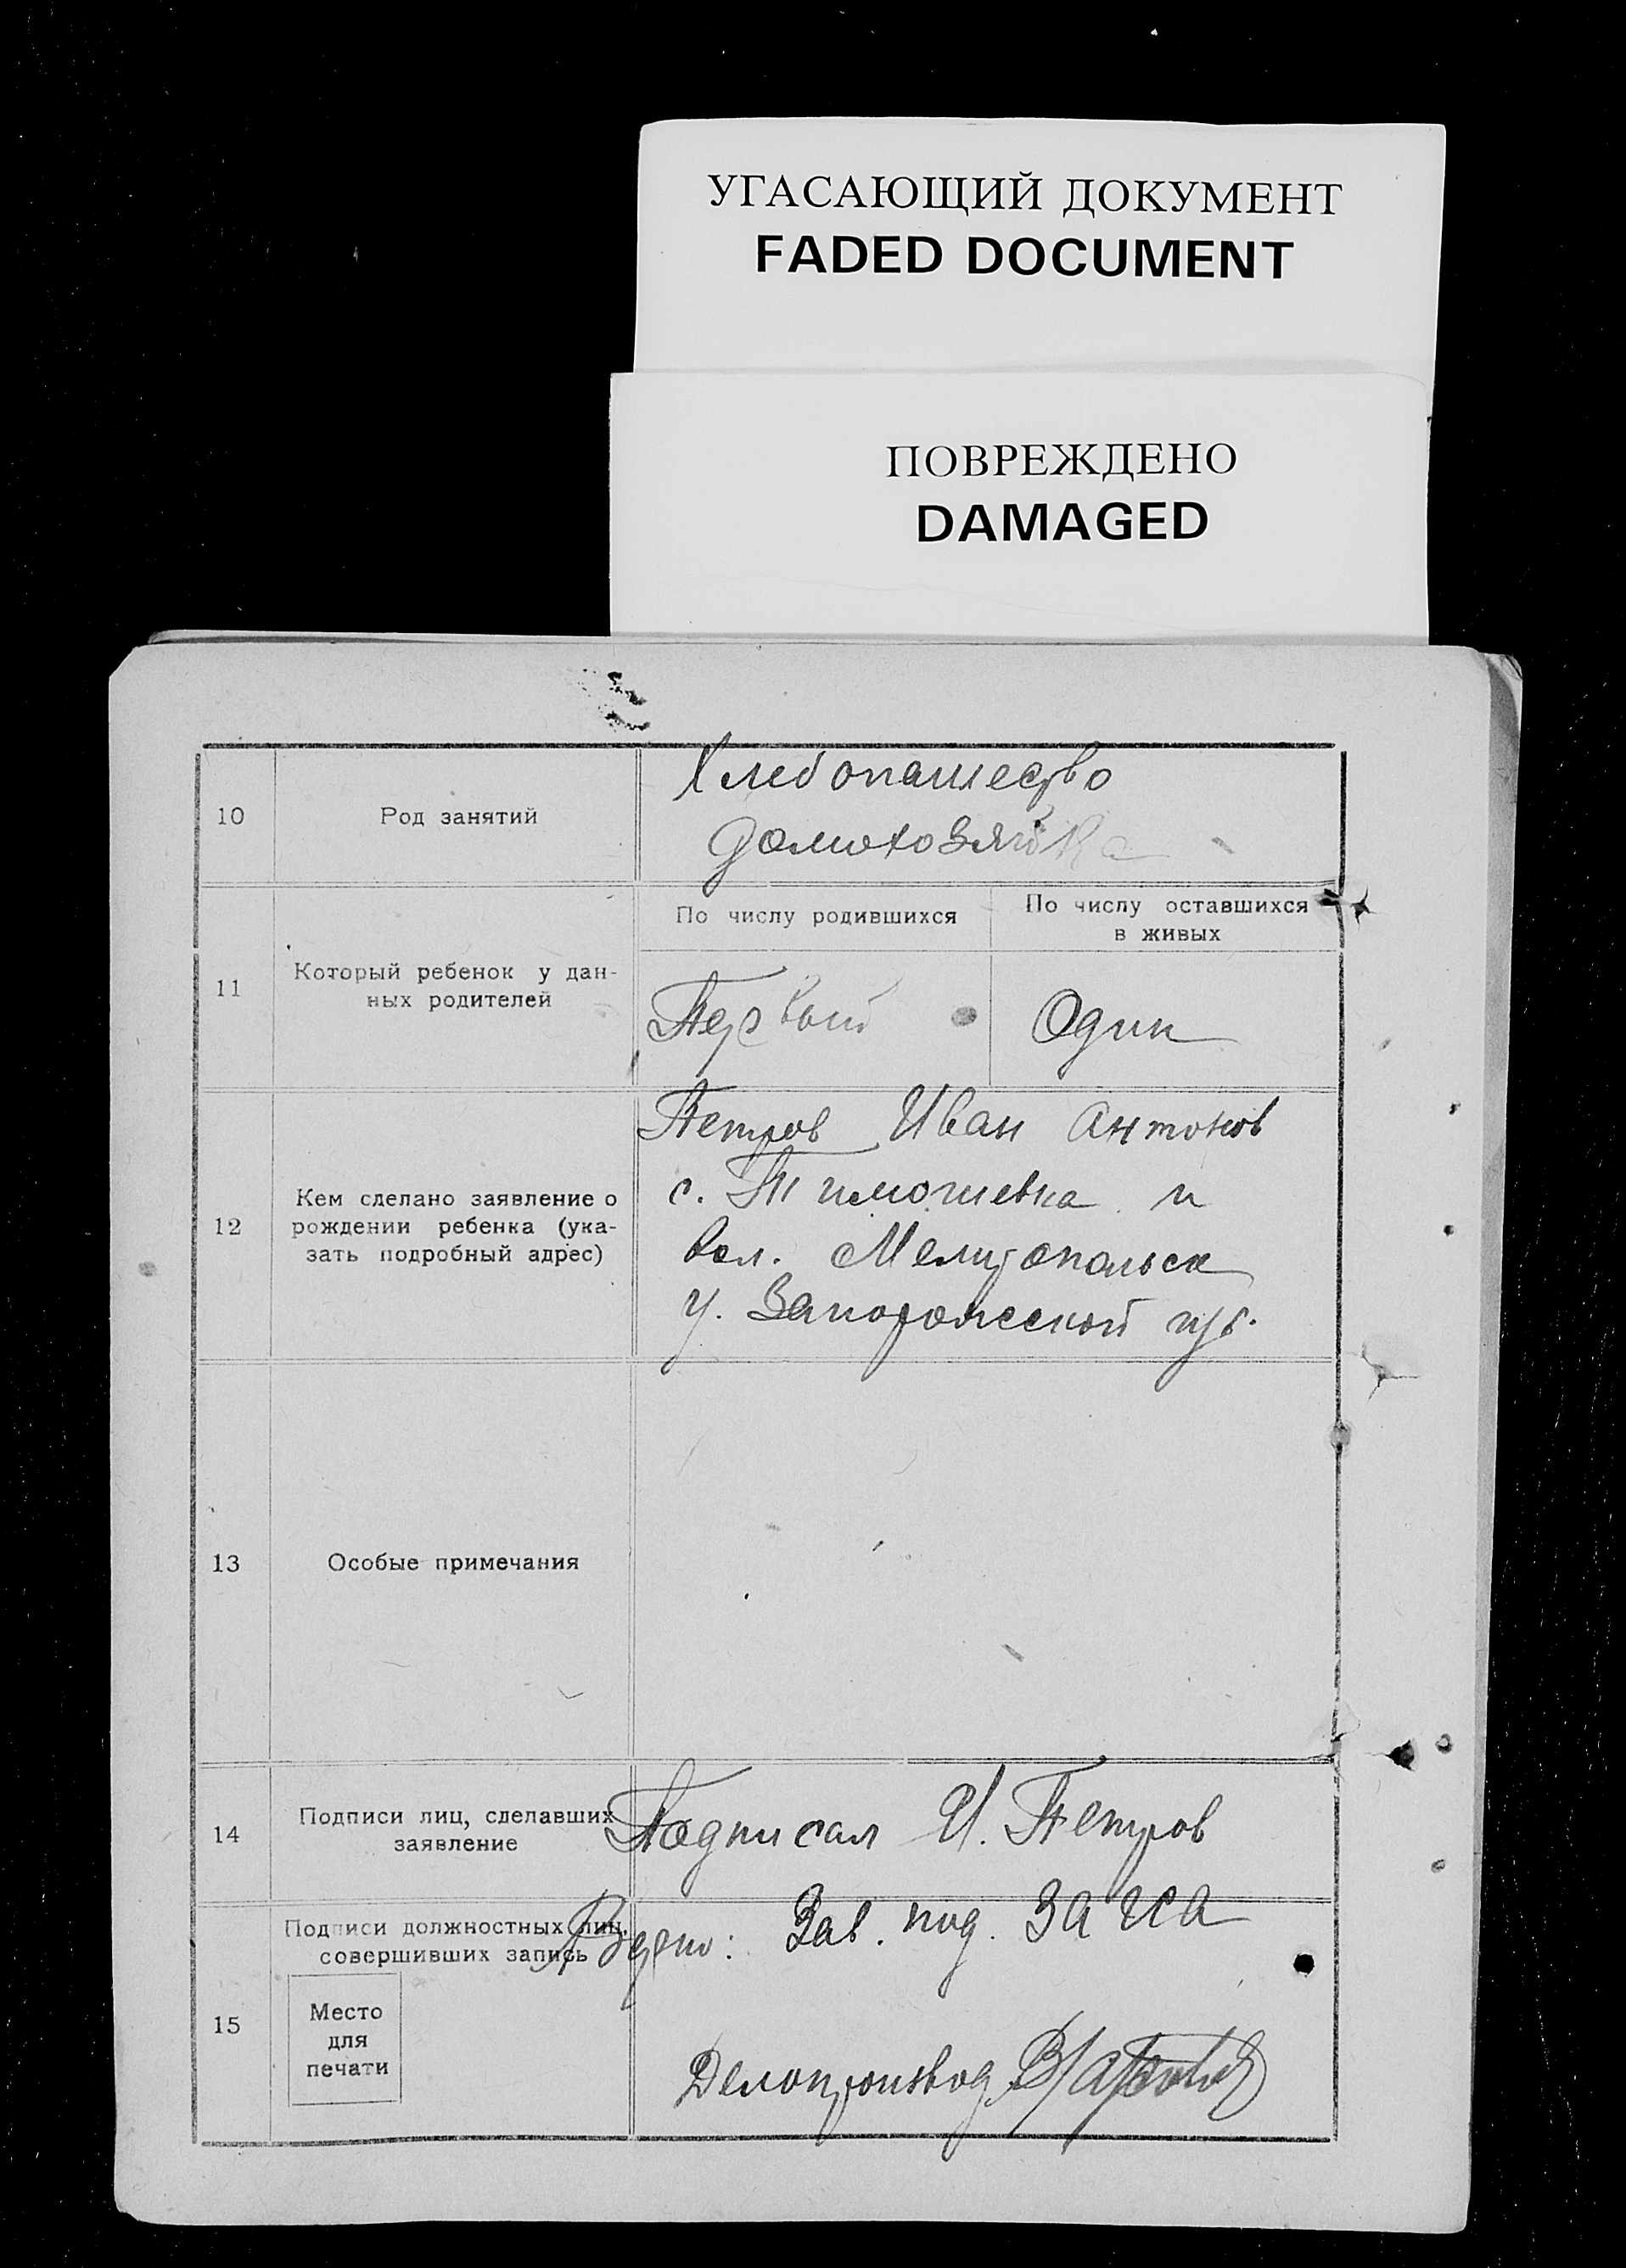 УГАСАЮЩИЙ ДОКУМЕНТ
FADED DOCUMENT
ПОВРЕЖДЕНО
DAMAGED
10
Род занятий
Хлебопашество
домохозяйка
11
Который ребенок у дан-
ных родителей
По числу родившихся
По числу оставшихся
в живых
Первый
Один
12
Кем сделано заявление о
рождении ребенка (ука-
зать подробный адрес)
Петров Иван Антонов
с. Тимошевка и
вол. Мелитопольск
у. Запорожской губ.
13
Особые примечания
14
Подписи лиц, сделавших
заявление
Подписал И. Петров
15
Подписи должностных лиц,
совершивших запись
Место
для
печати
Верно: Зав. под. ЗАГСА
Делопроизвод